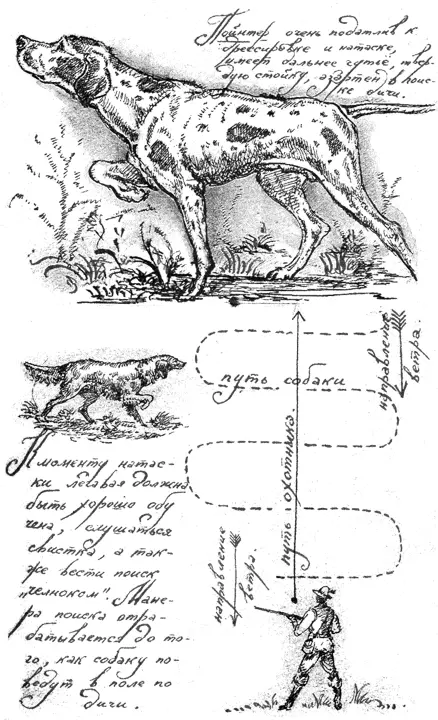 Пойнтер очень податлив к
дрессировке и натаске,
имеет дальнее чутье, твер-
дую стойку, азартен в поис-
ке дичи.
направление
ветра.
путь собаки
путь охотника.
К моменту натас-
ки легавая должна
быть хорошо обу
чена, слушаться
свистка, а так-
же вести поиск
"челноком". Мане-
ра поиска отра-
батывается до то-
го, как собаку по-
ведут в поле по
дичи.
направление
ветра.